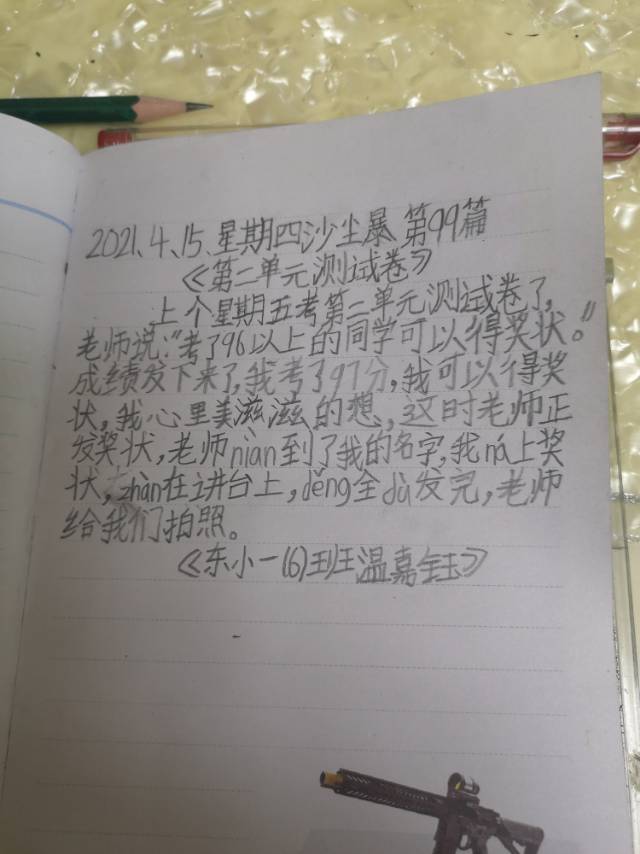 2021、4、15、星期四沙尘暴 第99篇
《第二单元测试卷》
上个星期五考第二单元测试卷了,
老师说:"考了96以上的同学可以得奖状。"
成绩发下来了,我考了97分,我可以得奖
状,我心里美滋滋的想,这时老师正
发奖状,老师niàn到了我的名字,我ná上奖
状,zhàn在讲台上,děng全dù发完,老师
给我们拍照。
《东小一(6)班温嘉钰》